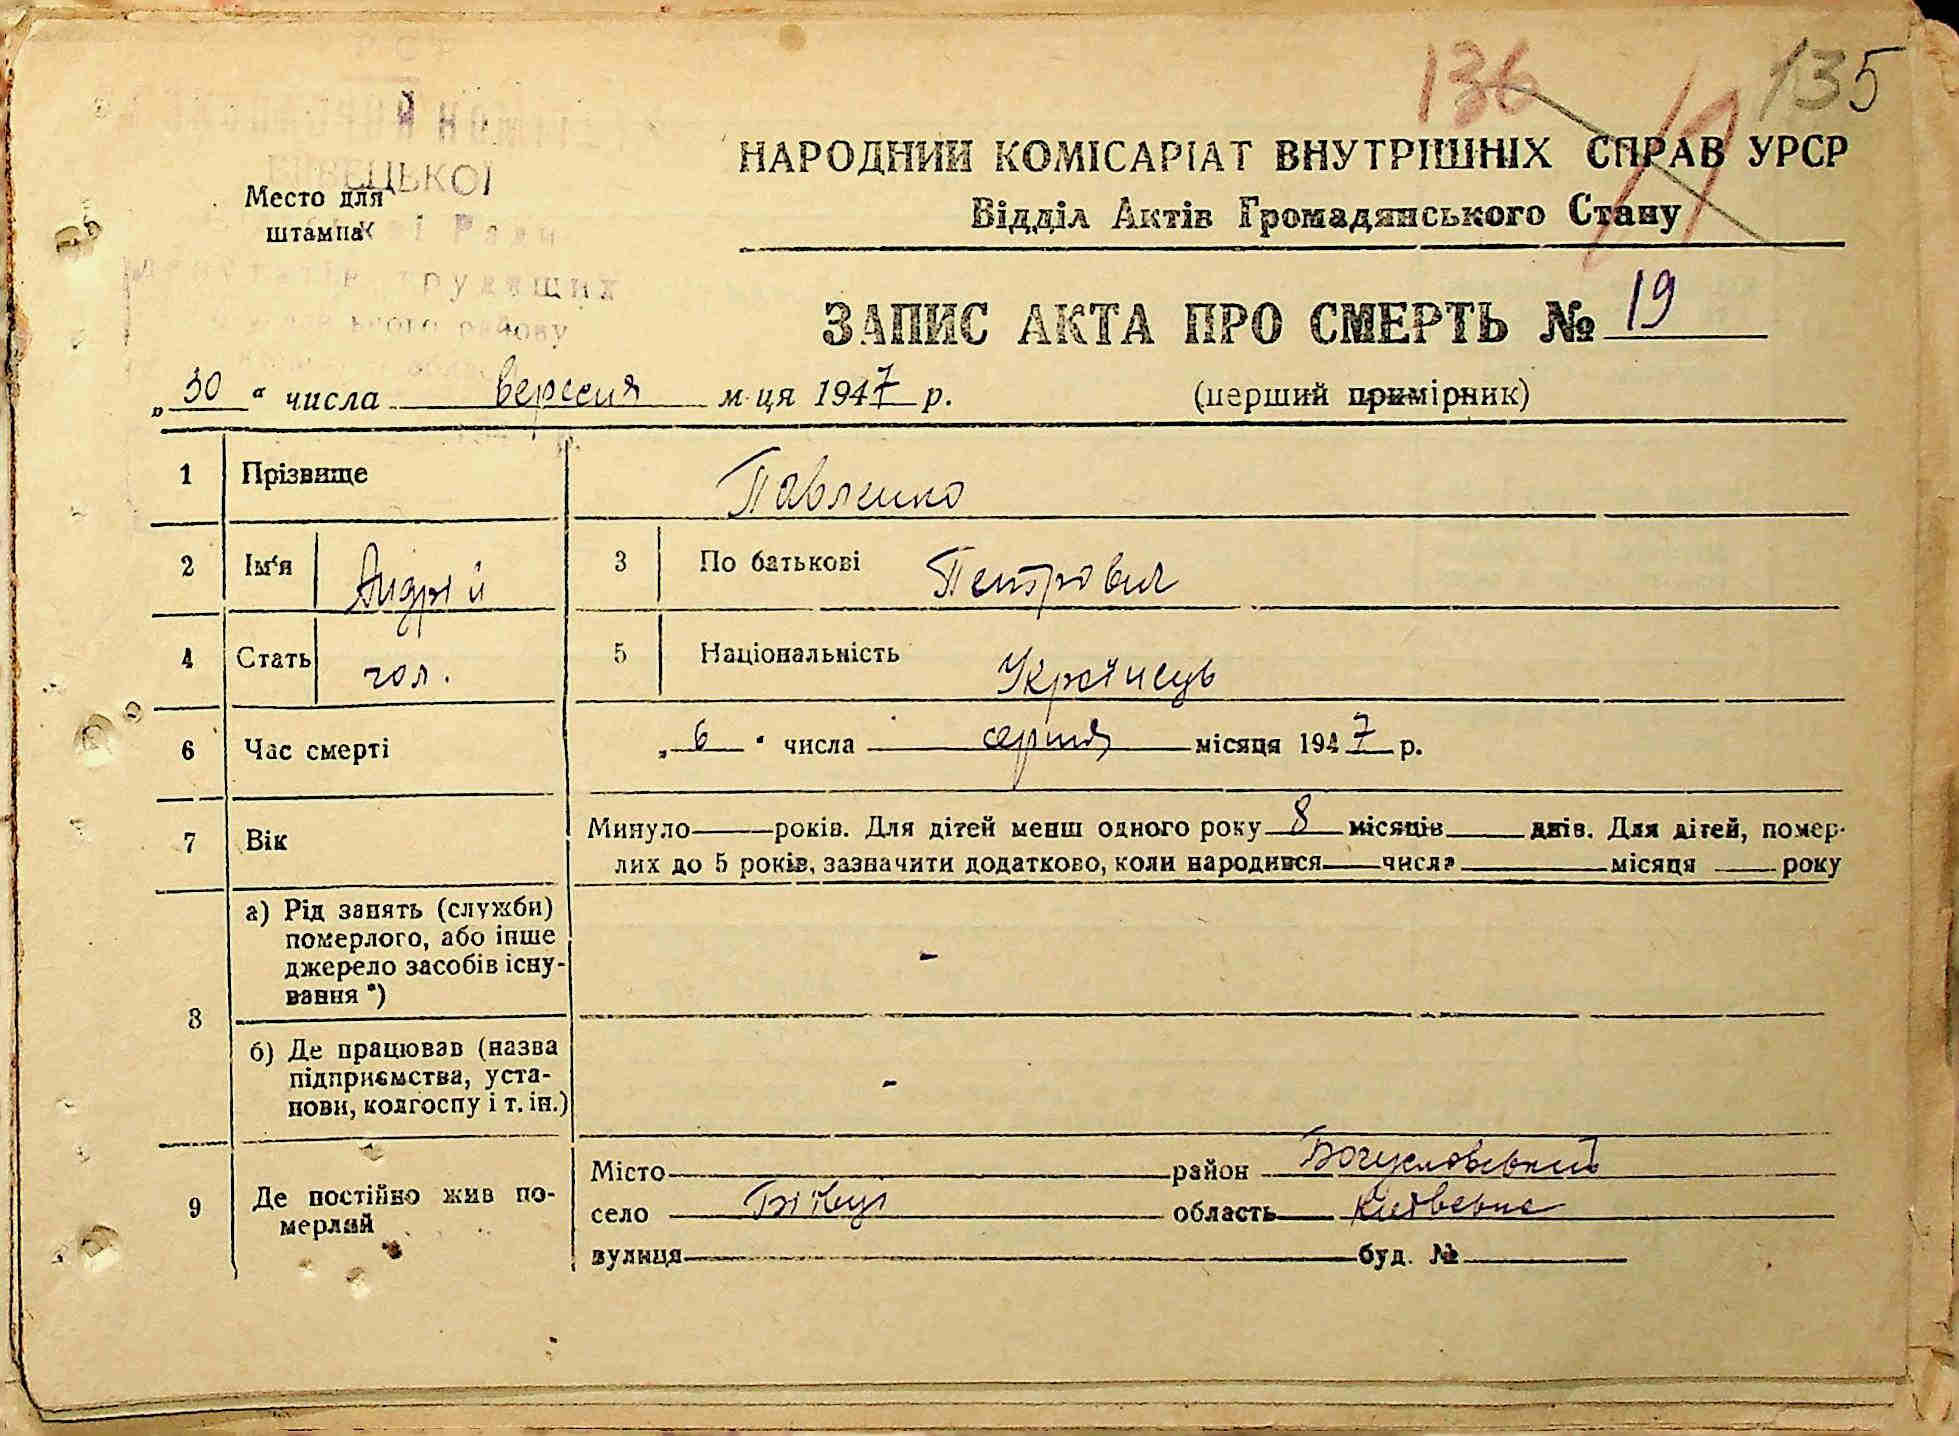 136 17 135
НАРОДНИЙ КОМІСАРІАТ ВНУТРІШНІХ СПРАВ УРСР
Відділ Актів Громадянського Стану
Место для
штампа
БІВЕЦЬКОЇ
Ради
трудящих
району
ЗАПИС АКТА ПРО СМЕРТЬ № 19
„30“ числа вересня м-ця 1947 р. (перший примірник)
1 Прізвище Павленко
2 Ім'я Андрій 3 По батькові Петрович
4 Стать чол. 5 Національність Українець
6 Час смерті „6“ числа серпня місяця 1947 р.
7 Вік Минуло—років. Для дітей менш одного року 8 місяців—днів. Для дітей, помер-
лих до 5 років, зазначити додатково, коли народився—числа—місяця—року
8 а) Рід занять (служби)
померлого, або інше
джерело засобів існу-
вання *) -
б) Де працював (назва
підприємства, уста-
нови, колгоспу і т. ін.) -
9 Де постійно жив по-
мерлий
Місто— район Богуславський
село Бівці область Київська
вулиця— буд. №